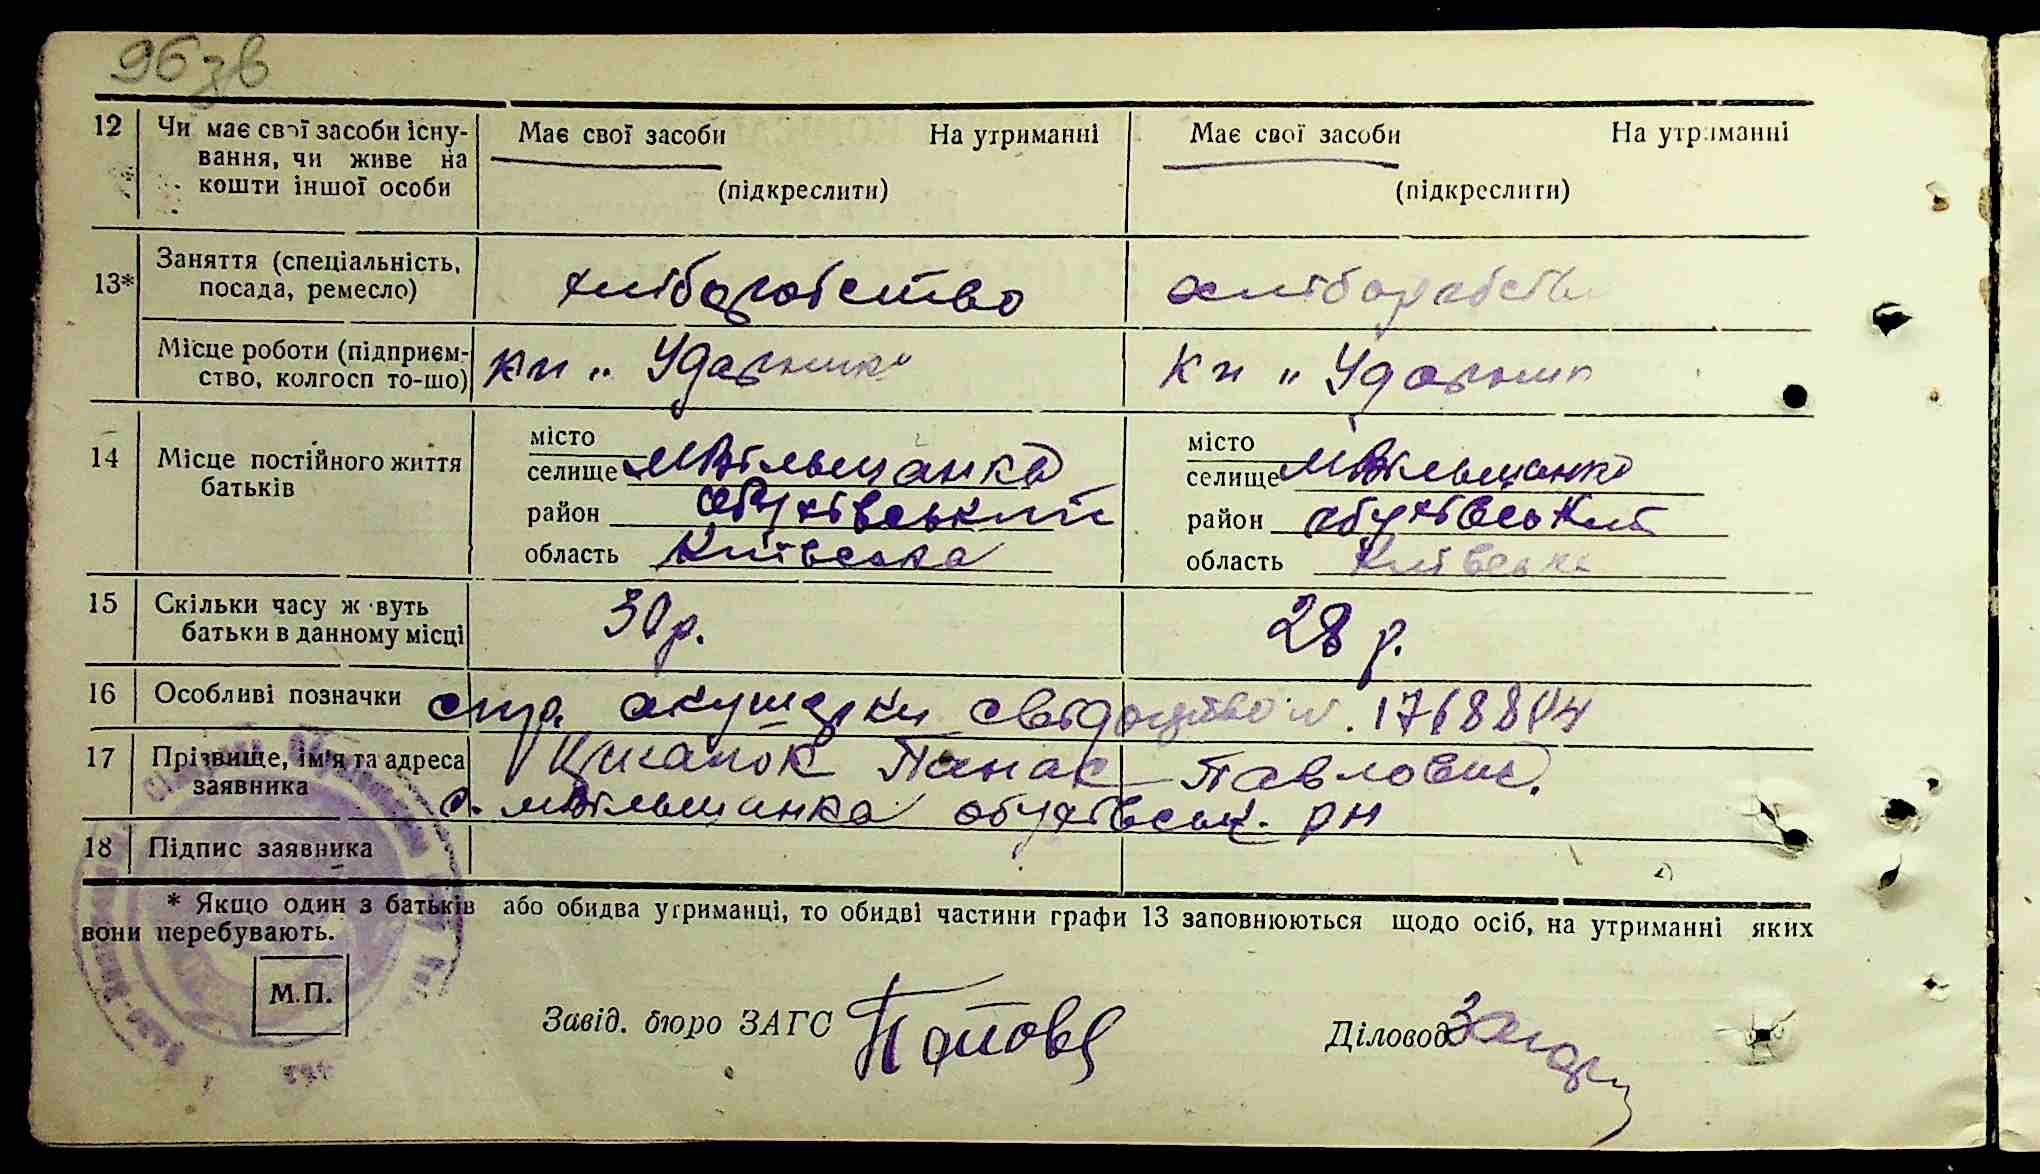 96 зв
12 Чи має свої засоби існу- Має свої засоби На утриманні Має свої засоби На утриманні
вання, чи живе на
кошти іншої особи (підкреслити) (підкреслити)
13* Заняття (спеціальність,
посада, ремесло) хліборобство хліборобство
Місце роботи (підприєм- кп „Ударник" кп „Ударник
ство, колгосп то-що)
14 Місце постійного життя місто місто
батьків селище Мгільщанка селище Мгільщанка
район обухівський район обухівський
область Київська область Київська
15 Скільки часу ж вуть 30 р. 28 р.
батьки в данному місці
16 Особливі позначки спр. акушерки свідоцтво №. 1768804
17 Прізвище, ім'я та адреса Циганок Панас Павлович.
заявника с. обухівськ. рн
18 Підпис заявника
* Якщо один з батьків або обидва утриманці, то обидві частини графи 13 заповнюються щодо осіб, на утриманні яких
вони перебувають.
М.П.
Завід. бюро ЗАГС Попова Діловод